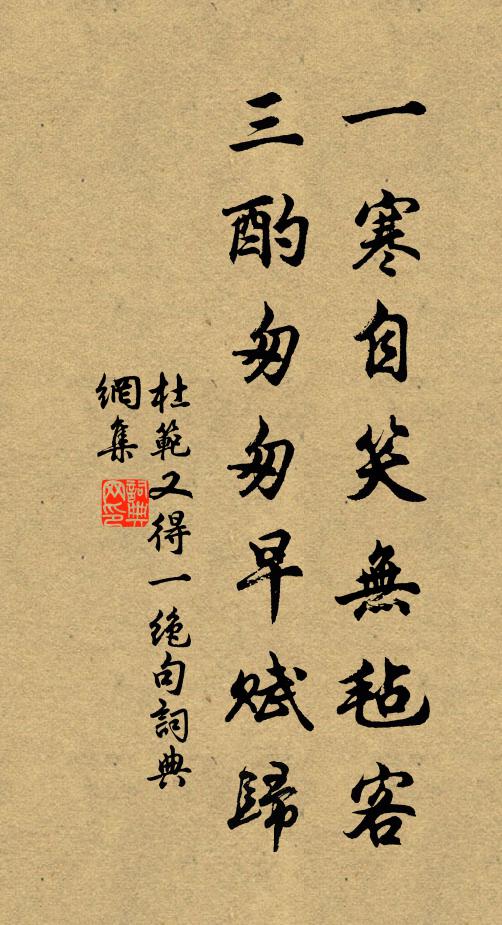 一寒自笑無毡客
三酌匆匆早賦歸
杜範又得一絕句詞典
網集
詞典
网印